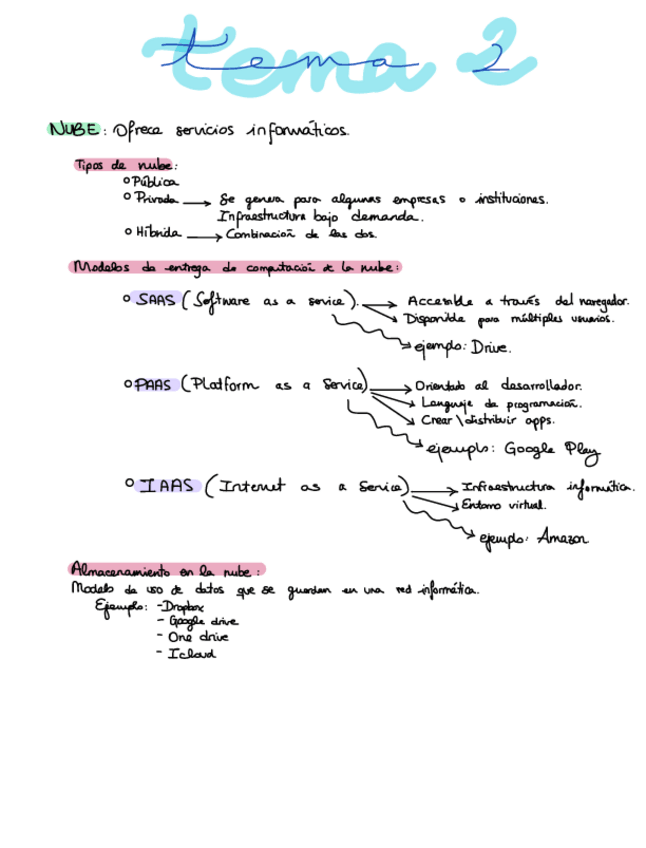 tema 2
NUBE: Ofrece servicios informáticos.
Tipos de nube:
Pública
Privada → Se genera para algunas empresas o instituciones.
Infraestructura bajo demanda.
Híbrida → Combinación de las dos.
Modelos de entrega de computación de la nube:
SAAS (Software as a service). → Accesible a través del navegador.
→ Disponible para múltiples usuarios.
→ ejemplo: Drive.
PAAS (Platform as a Service) → Orientado al desarrollador.
→ Lenguaje de programación.
→ Crear \ distribuir apps.
→ ejemplo: Google Play
IAAS (Internet as a Service) → Infraestructura informática.
→ Entorno virtual.
→ ejemplo: Amazon
Almacenamiento en la nube:
Modelo de uso de datos que se guardan en una red informática.
Ejemplo: - Dropbox
- Google drive
- One drive
- Icloud